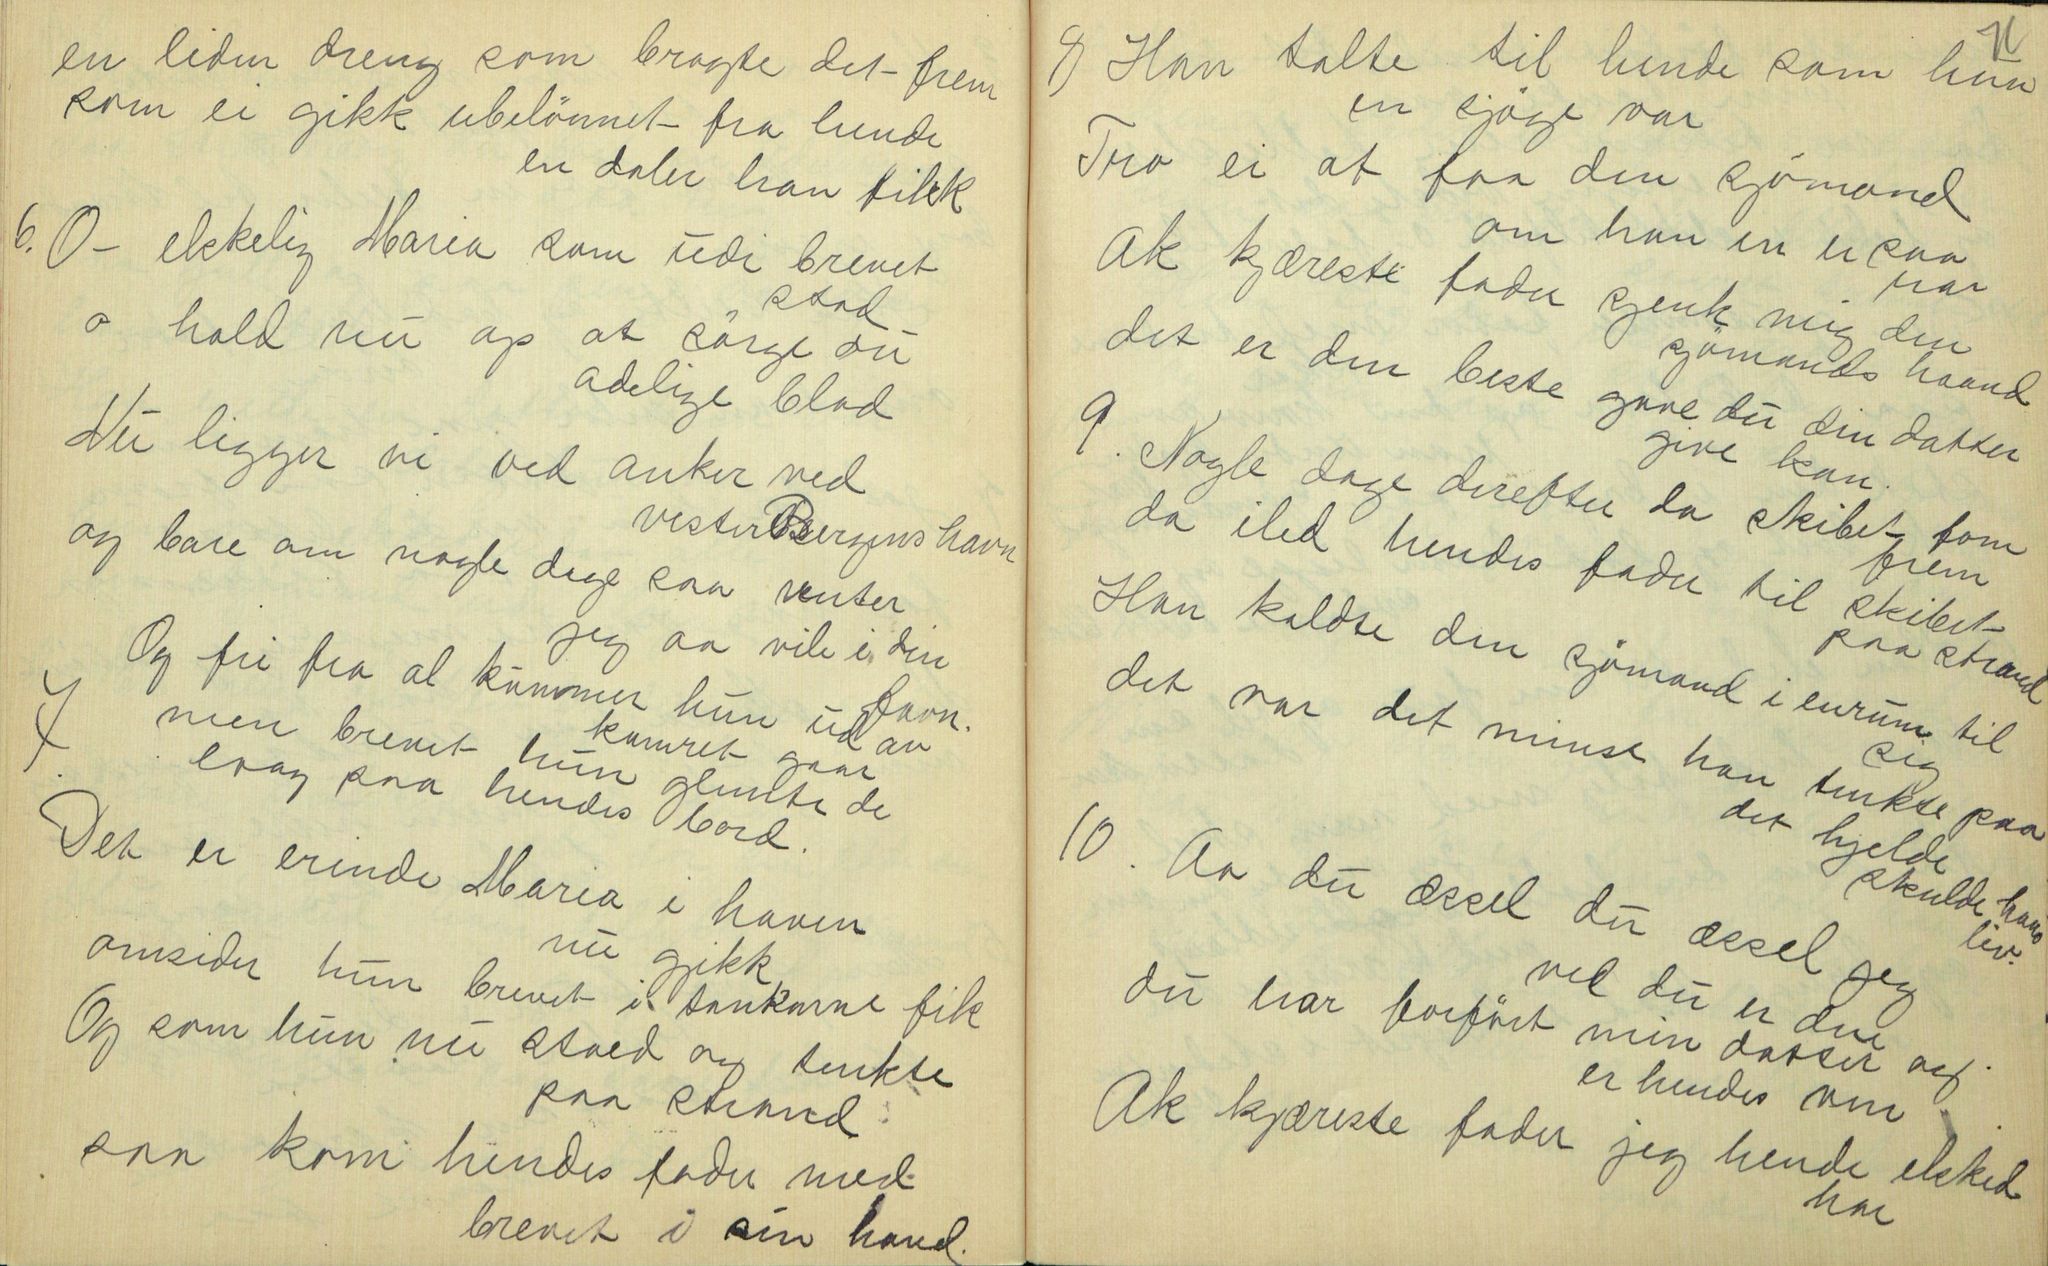 en liden dreng som bragte det frem
som ei gikk ubelönnet fra hende
en daler han fikk
6. O- elskelig Maria som udi brevet
stod
o hold nu op at sörge du
adelige blod
Nu ligger vi ved anker ved
vesterBergens havn
og bare om nogle dage saa venter
jeg aa vile i din
favn.
7. Og fri fra al kummer hun ud av
kamret gaar
men brevet hun glemte de
laag paa hendes bord.
Det er erinde Maria i haven
nu gikk
omsider hun brevet i tankerne fik
Og som hun nu stoed og tenkte
paa strand
saa kom hendes fader med
brevet i sin hand.
8) Han talte til hende som hun
en sjöge var
Tro ei at faa den sjömand
om han en er saa
rar
Ak kjæreste fader sjenk mig den
sjömands haand
det er den beste gave du din datter
give kan.
9. Nogle dage derefter da skibet kom
frem
da iled hendes fader til skibet
paa strand
Han kaldte den sjömand i enrum til
sig
det var det minst han tenkte paa
det hjelde
skulde hans
liv.
10. Aa du æssel du æssel jeg
vel du er den
du har forfört min datter og
er hendes ven
Ak kjæreste fader jeg hende elsked
har